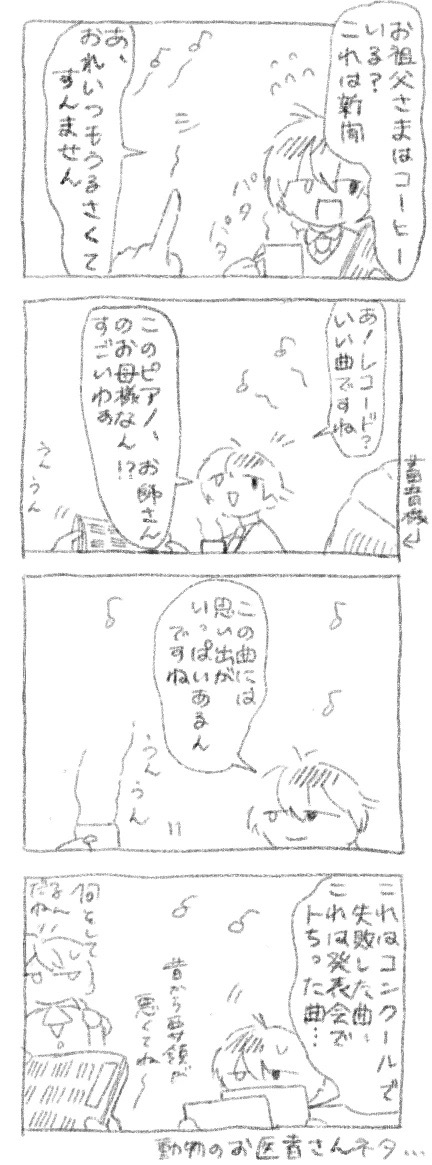 お祖父さまはコーヒー
いる?
これは新聞
パタ
パタ
あ、
おれいつもうるさくて
すんません
あ!レコード?
いい曲ですね
このピアノ、お師さん
のお母様なん!?
すごいわぁ
うん
うん
この曲には
思い出が
いっぱいあるん
ですね
うん
うん
これはコンクールで
失敗した曲、
これは発表会で
トちった曲…
昔から要領が
悪くてね〜
何をして
るん
だね
動物のお医者さんネタ…